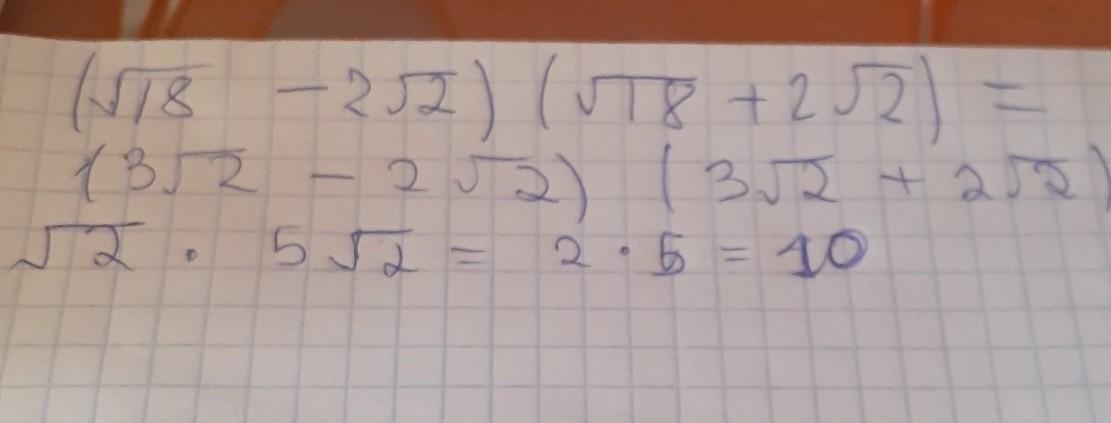 (√18 - 2√2) (√18 + 2√2) =
(3√2 - 2√2) (3√2 + 2√2)
√2 · 5√2 = 2 · 5 = 10